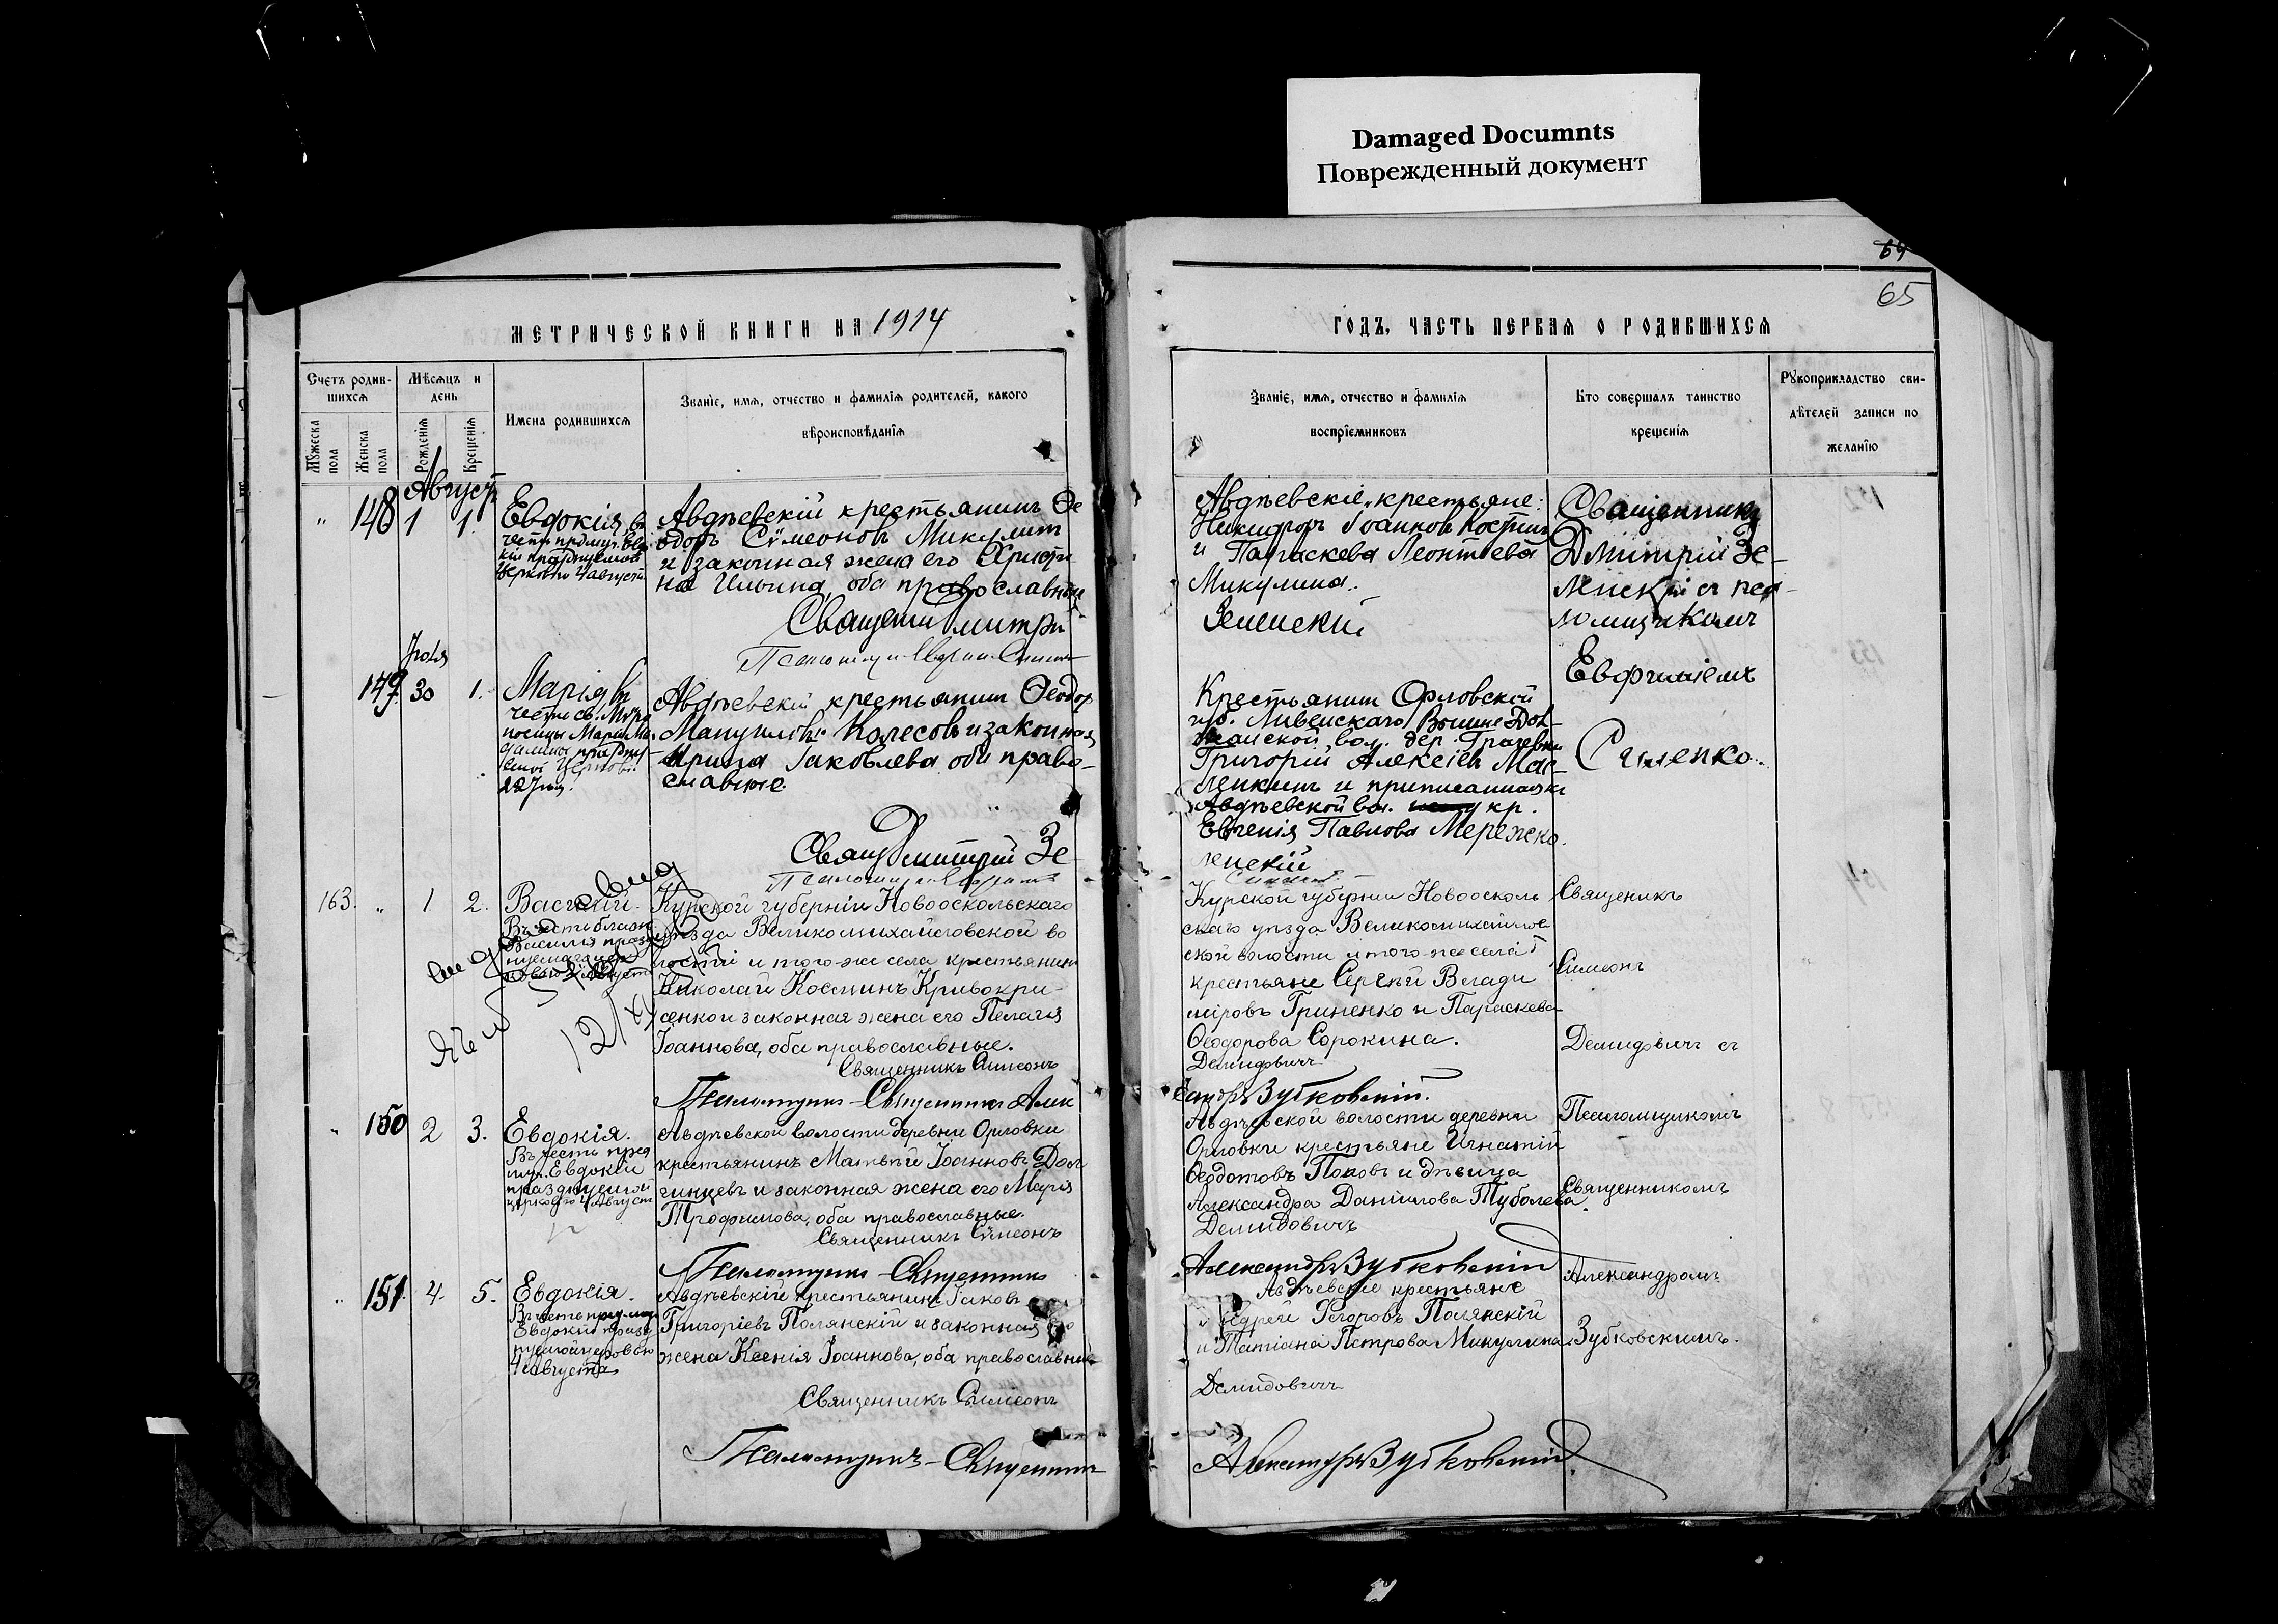 Damaged Documnts
Поврежденный документ
65
МЕТРИЧЕСКОЙ КНИГИ НА 1914
ГОДЪ, ЧАСТЬ ПЕРВАЯ О РОДИВШИХСЯ
Счетъ родив-
шихся
Мѣсяцъ и
день
Имена родившихся
Званіе, имя, отчество и фамилія родителей, какого
вѣроисповѣданія
Мужеска
пола
Женска
пола
Рожденія
Крещенія
Званіе, имя, отчество и фамилія
воспріемниковъ
Кто совершалъ таинство
крещенія
Рукоприкладство сви-
дѣтелей записи по
желанію
Август
148 1 1.
Евдокія, въ
Церковію 4 августа
Авдѣевскій крестьянинъ Ѳе
одоръ Симеоновъ Микулин
и законная жена его Христи
на Ильина, оба православные
Священ Дмитрій
Авдѣевскіе крестьяне:
Никифоръ Іоанновъ Костин
и Параскева Леонтіева
Микулина.
Зеленскій
Священникъ
Дмитрій Зе-
ленскій съ пса-
ломщикомъ
Евфиміемъ
Іюля
149 30 1.
Марія въ
честь св. Мѵро
носицы Маріи Ма
22 Іюля.
Авдѣевскій крестьянин Ѳеодор
Колесовъ и законная
Ирина Іаковлева оба право-
славные.
Свящ Дмитрій Зе
Крестьянин Орловской
губ. Ливенскаго
вол. дер. Грачевки
Григорій Алексіевъ Мас-
ленкинъ и приписанная къ
Авдѣевской вол. кр.
Евгенія Павлова Мережко.
ленскій
163. „ 1 2.
Василій.
Въ честь блаж.
Василія празд
Курской губерніи Новооскольскаго
уѣзда Великомихайловской во
лости и того-же села крестьянин
Николай Косминъ Кривокри-
сенко и законная жена его Пелагія
Іоаннова, оба православные.
Священникъ Симеонъ
Псаломщикъ-Священникъ Алек
Курской губерніи Новоосколь
скаго уѣзда Великомихайлов
ской волости и того-же села
крестьяне Сергѣй Влади
міровъ Гриненко и Параскева
Ѳеодорова Сорокина.
Демидовичъ
сандръ Зубковскій.
Священикъ
Симеонъ
Демидовичъ съ
150 2 3.
Евдокія.
Въ честь прep
муч. Евдокіи
празднуемой
церковію 4 Август
Авдѣевской волости деревни Орловки
крестьянинъ Матвѣй Іоанновъ Дол
гинцевъ и законная жена его Марія
Трофимова, оба православные.
Священникъ Симеонъ
Псаломщикъ-Священникъ
Авдѣевской волости деревни
Орловки крестьяне Игнатій
Ѳеодотовъ Поповъ и дѣвица
Александра Даніилова Туболева.
Демидовичъ
Александръ Зубковскій
Псаломщикомъ
Священникомъ
151 4. 5.
Евдокія.
Въ честь прep. муч.
Евдокіи празд
нуемой церковью
4 августа
Авдѣевскій крестьянинъ Іаковъ
Григоріевъ Полянскій и законная его
жена Ксенія Іоаннова, оба православные
Священникъ Симеонъ
Псаломщикъ-Священникъ
Авдѣевскіе крестьяне
Андрей Егоровъ Полянскій
и Татіана Петрова Микулина.
Демидовичъ
Александръ Зубковскій
Александромъ
Зубковскимъ.